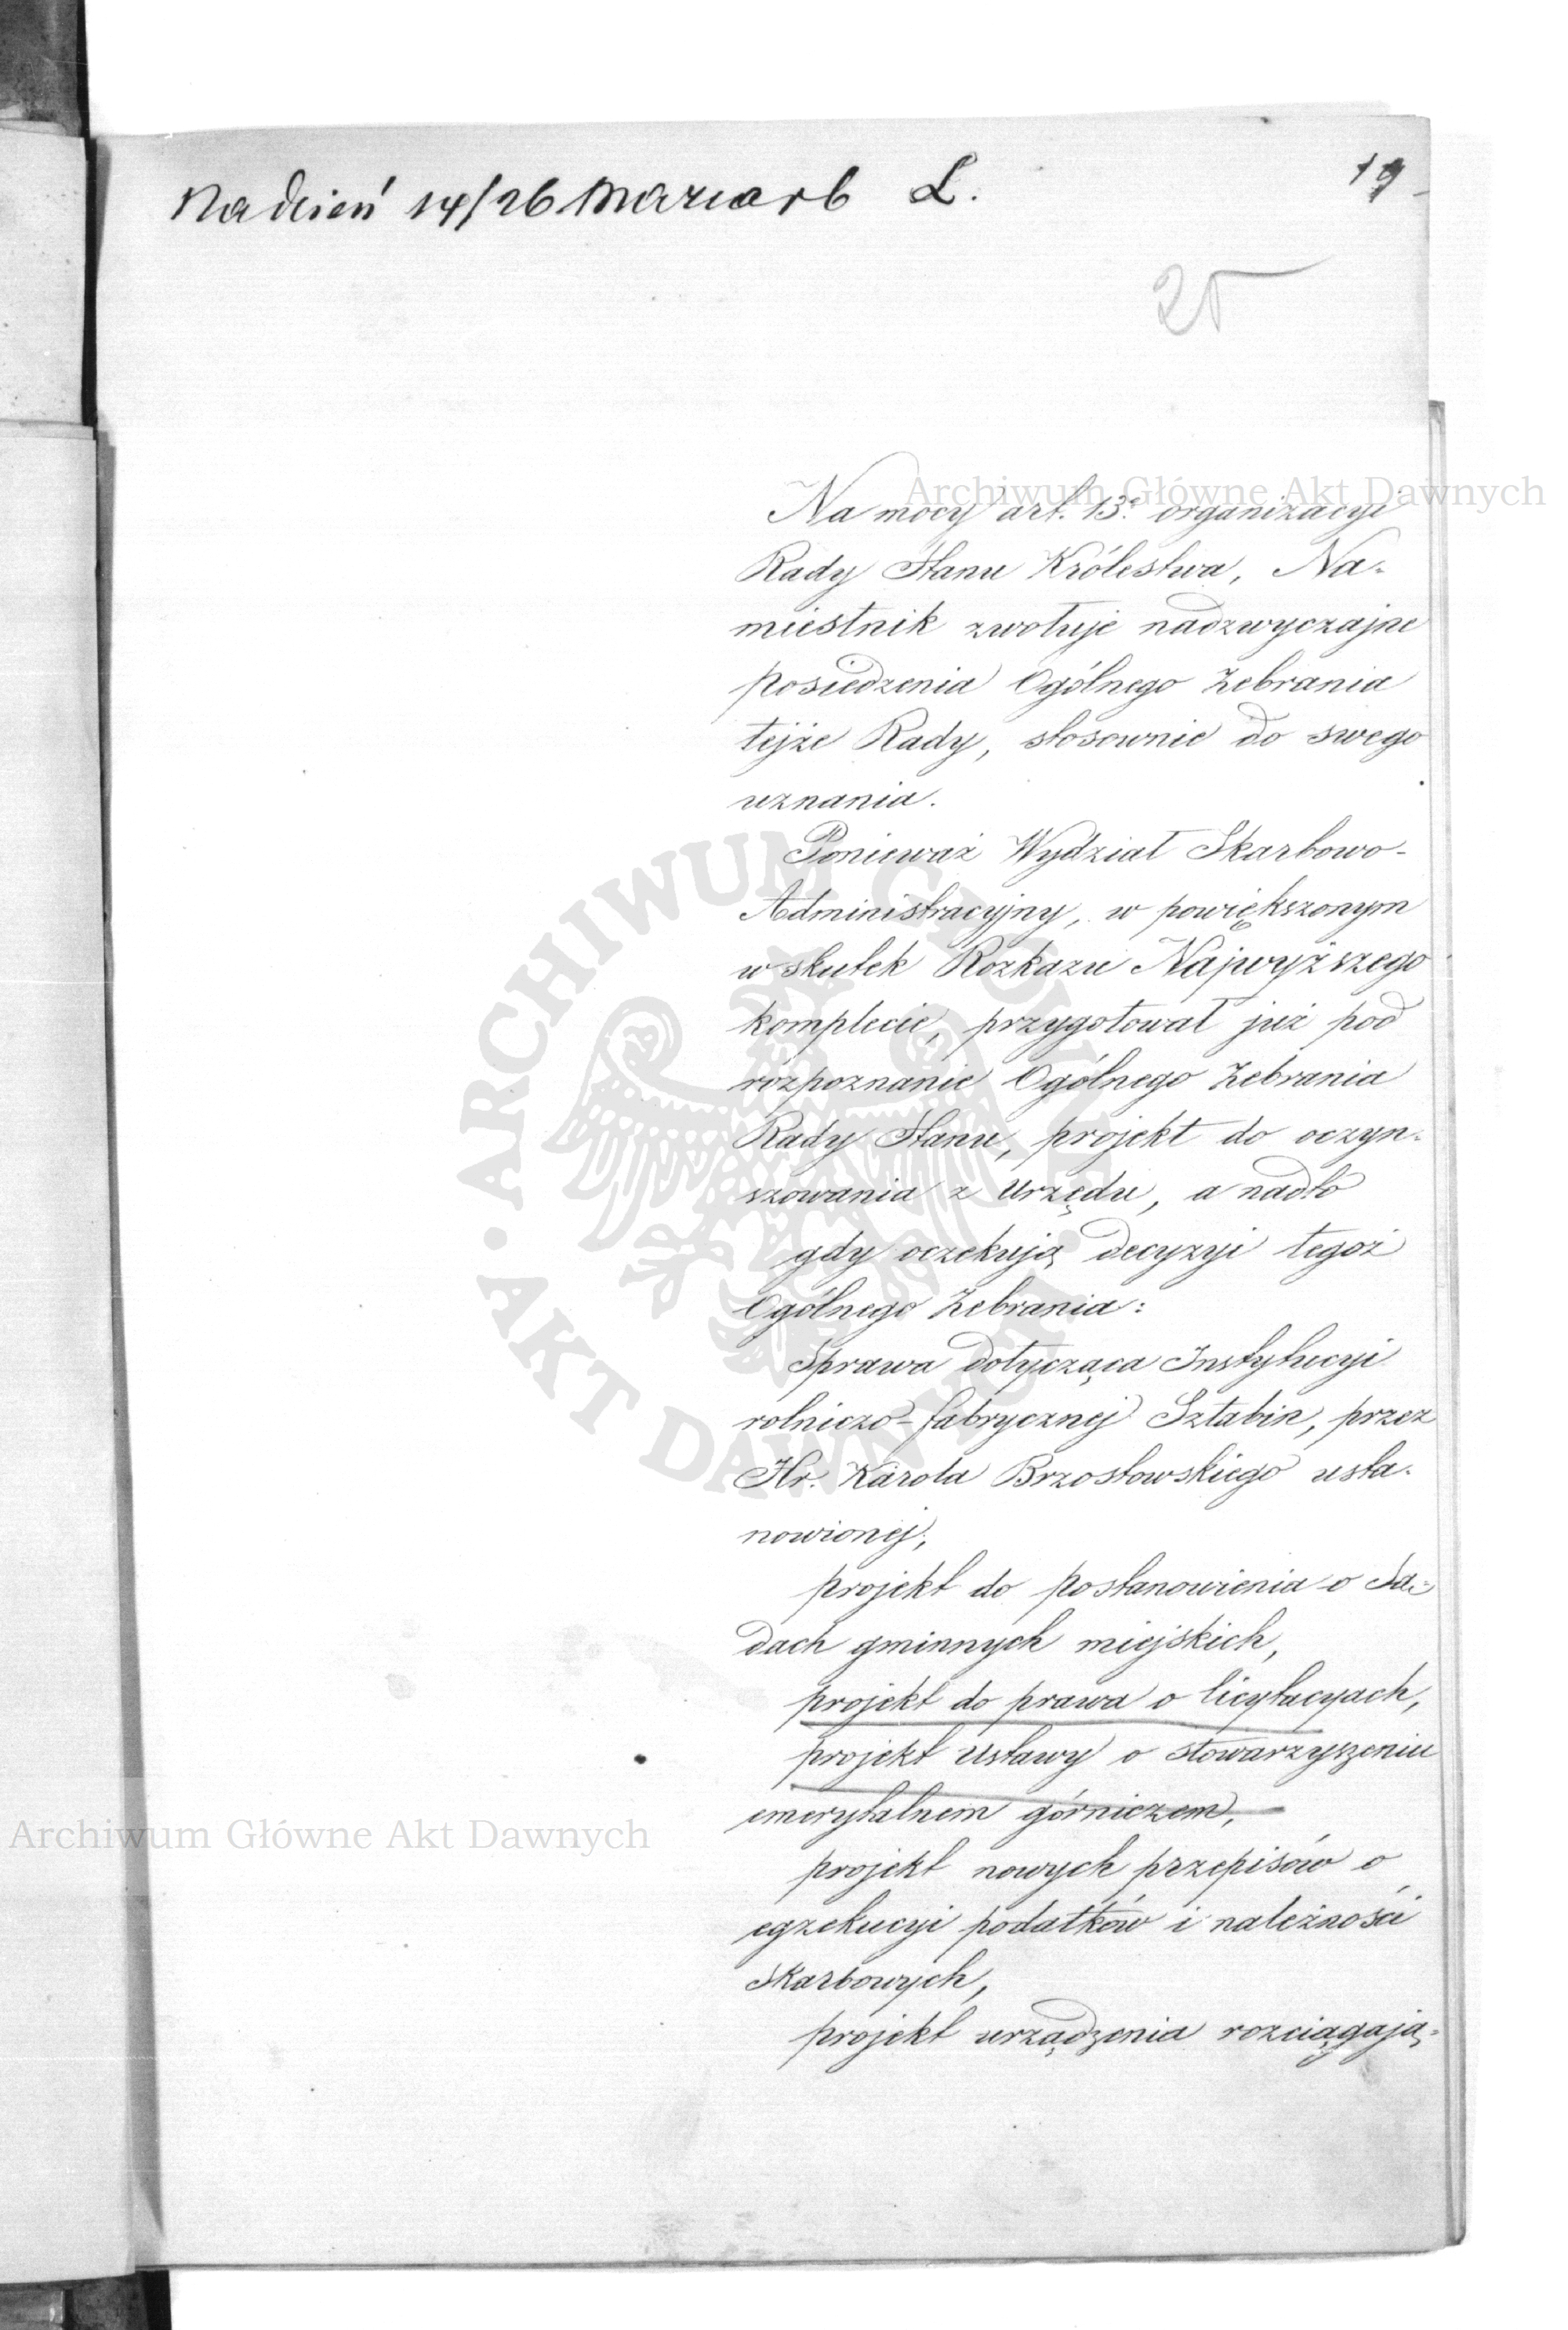 Na dzień 14/26 Marca r b L.
19
25
Na mocy art. 13º organizacyi
Rady Stanu Królestwa, Na-
miestnik zwołuje nadzwyczajne
posiedzenia Ogólnego Zebrania
tejże Rady, stosownie do swego
uznania.
Ponieważ Wydział Skarbowo-
Administracyjny, w powiększonym
w skutek Rozkazu Najwyższego
komplecie, przygotował już pod
rozpoznanie Ogólnego Zebrania
Rady Stanu, projekt do oczyn-
szowania z Urzędu, a nadto
gdy oczekują decyzyi tegoż
Ogólnego Zebrania:
Sprawa dotycząca Instytucyi
rolniczo-fabrycznej Sztabin, przez
Hr. Karola Brzostowskiego usta-
nowionej,
projekt do postanowienia o Są-
dach gminnych miejskich,
projekt do prawa o licytacyach,
projekt Ustawy o stowarzyszeniu
emerytalnem górniczem,
projekt nowych przepisów o
egzekucyi podatków i należności
skarbowych,
projekt urządzenia rozciągają-
Archiwum Główne Akt Dawnych
ARCHIWUM GŁÓWNE AKT DAWNYCH
Archiwum Główne Akt Dawnych